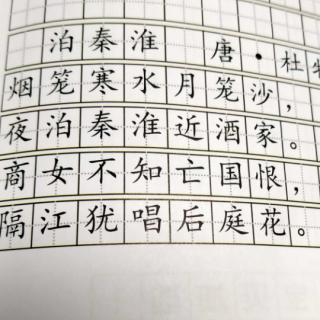 泊秦淮 唐·杜牧
烟笼寒水月笼沙，
夜泊秦淮近酒家。
商女不知亡国恨，
隔江犹唱后庭花。